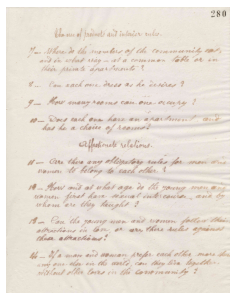 280
Choice of projects and interior rules.
7 — Where do the members of the community eat,
and in what way — at a common table or in
their private apartments?
8 — Can each one dress as he desires?
9 — How many rooms can one occupy?
10 — Does each one have an apartment and
has he a choice of rooms?
Affectionate relations.
11 — Are there any obligatory rules for man and
woman to belong to each other?
12 — How and at what age do the young men and
women first have sexual intercourse, and by
whom are they taught?
13 — Can the young men and women follow their
attractions in love or are there rules against
these attractions?
14 — If a man and woman prefer each other more than
any one else in the world, can they live together
without other loves in the community?